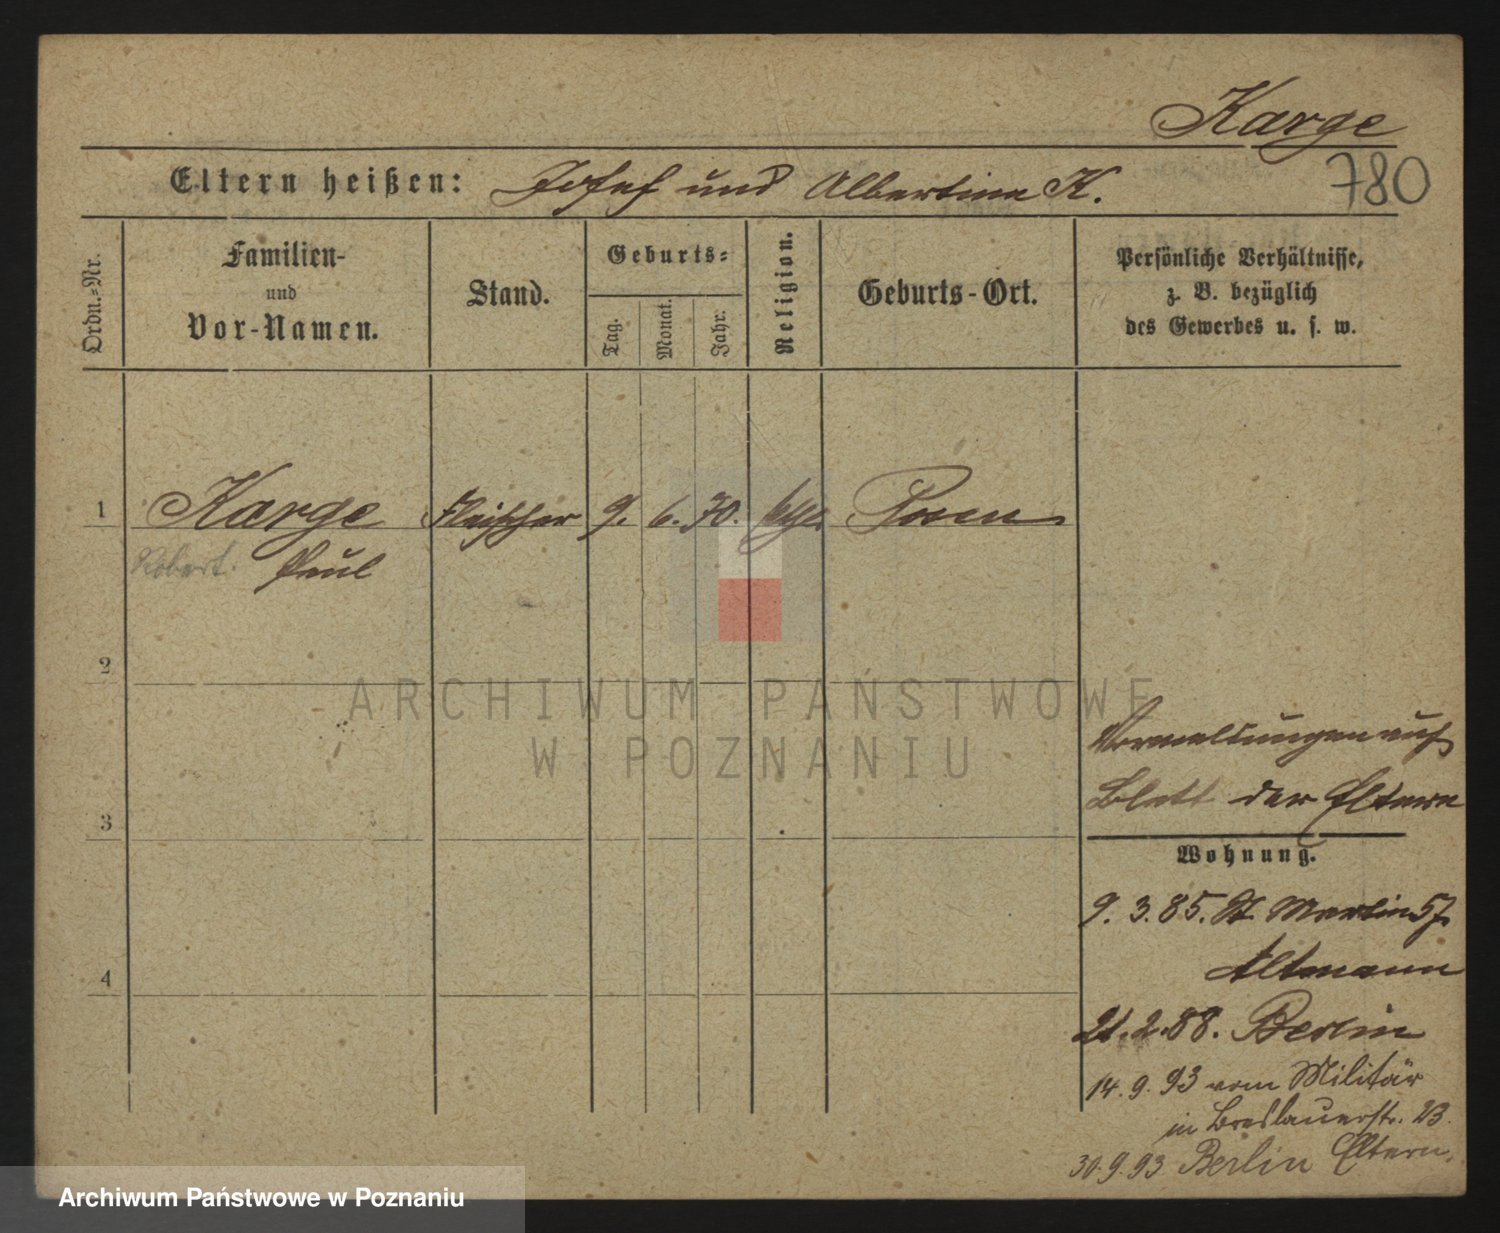 Karge
780
Eltern heißen: Josef und Albertine K.
Ordn.-Nr.
Familien-
und
Vor-Namen.
Stand.
Geburts-
Tag.
Monat.
Jahr.
Religion.
Geburts-Ort.
Persönliche Verhältnisse,
z. B. bezüglich
des Gewerbes u. s. w.
1 Karge Fleischer 9. 6. 70. Posen
Robert. Paul
2
3
4
ARCHIWUM PAŃSTWOWE
W POZNANIU
auf
Blatt der Eltern
Wohnung.
9. 3. 85. St. Martin 57
Altmann
21. 2. 88. Berlin
14. 9. 93 vom Militär
in Breslauerstr. 23.
30. 9. 93 Berlin Eltern.
Archiwum Państwowe w Poznaniu